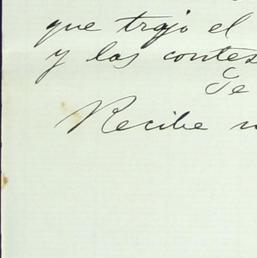 que trajo el
y las contes
Te
Recibe